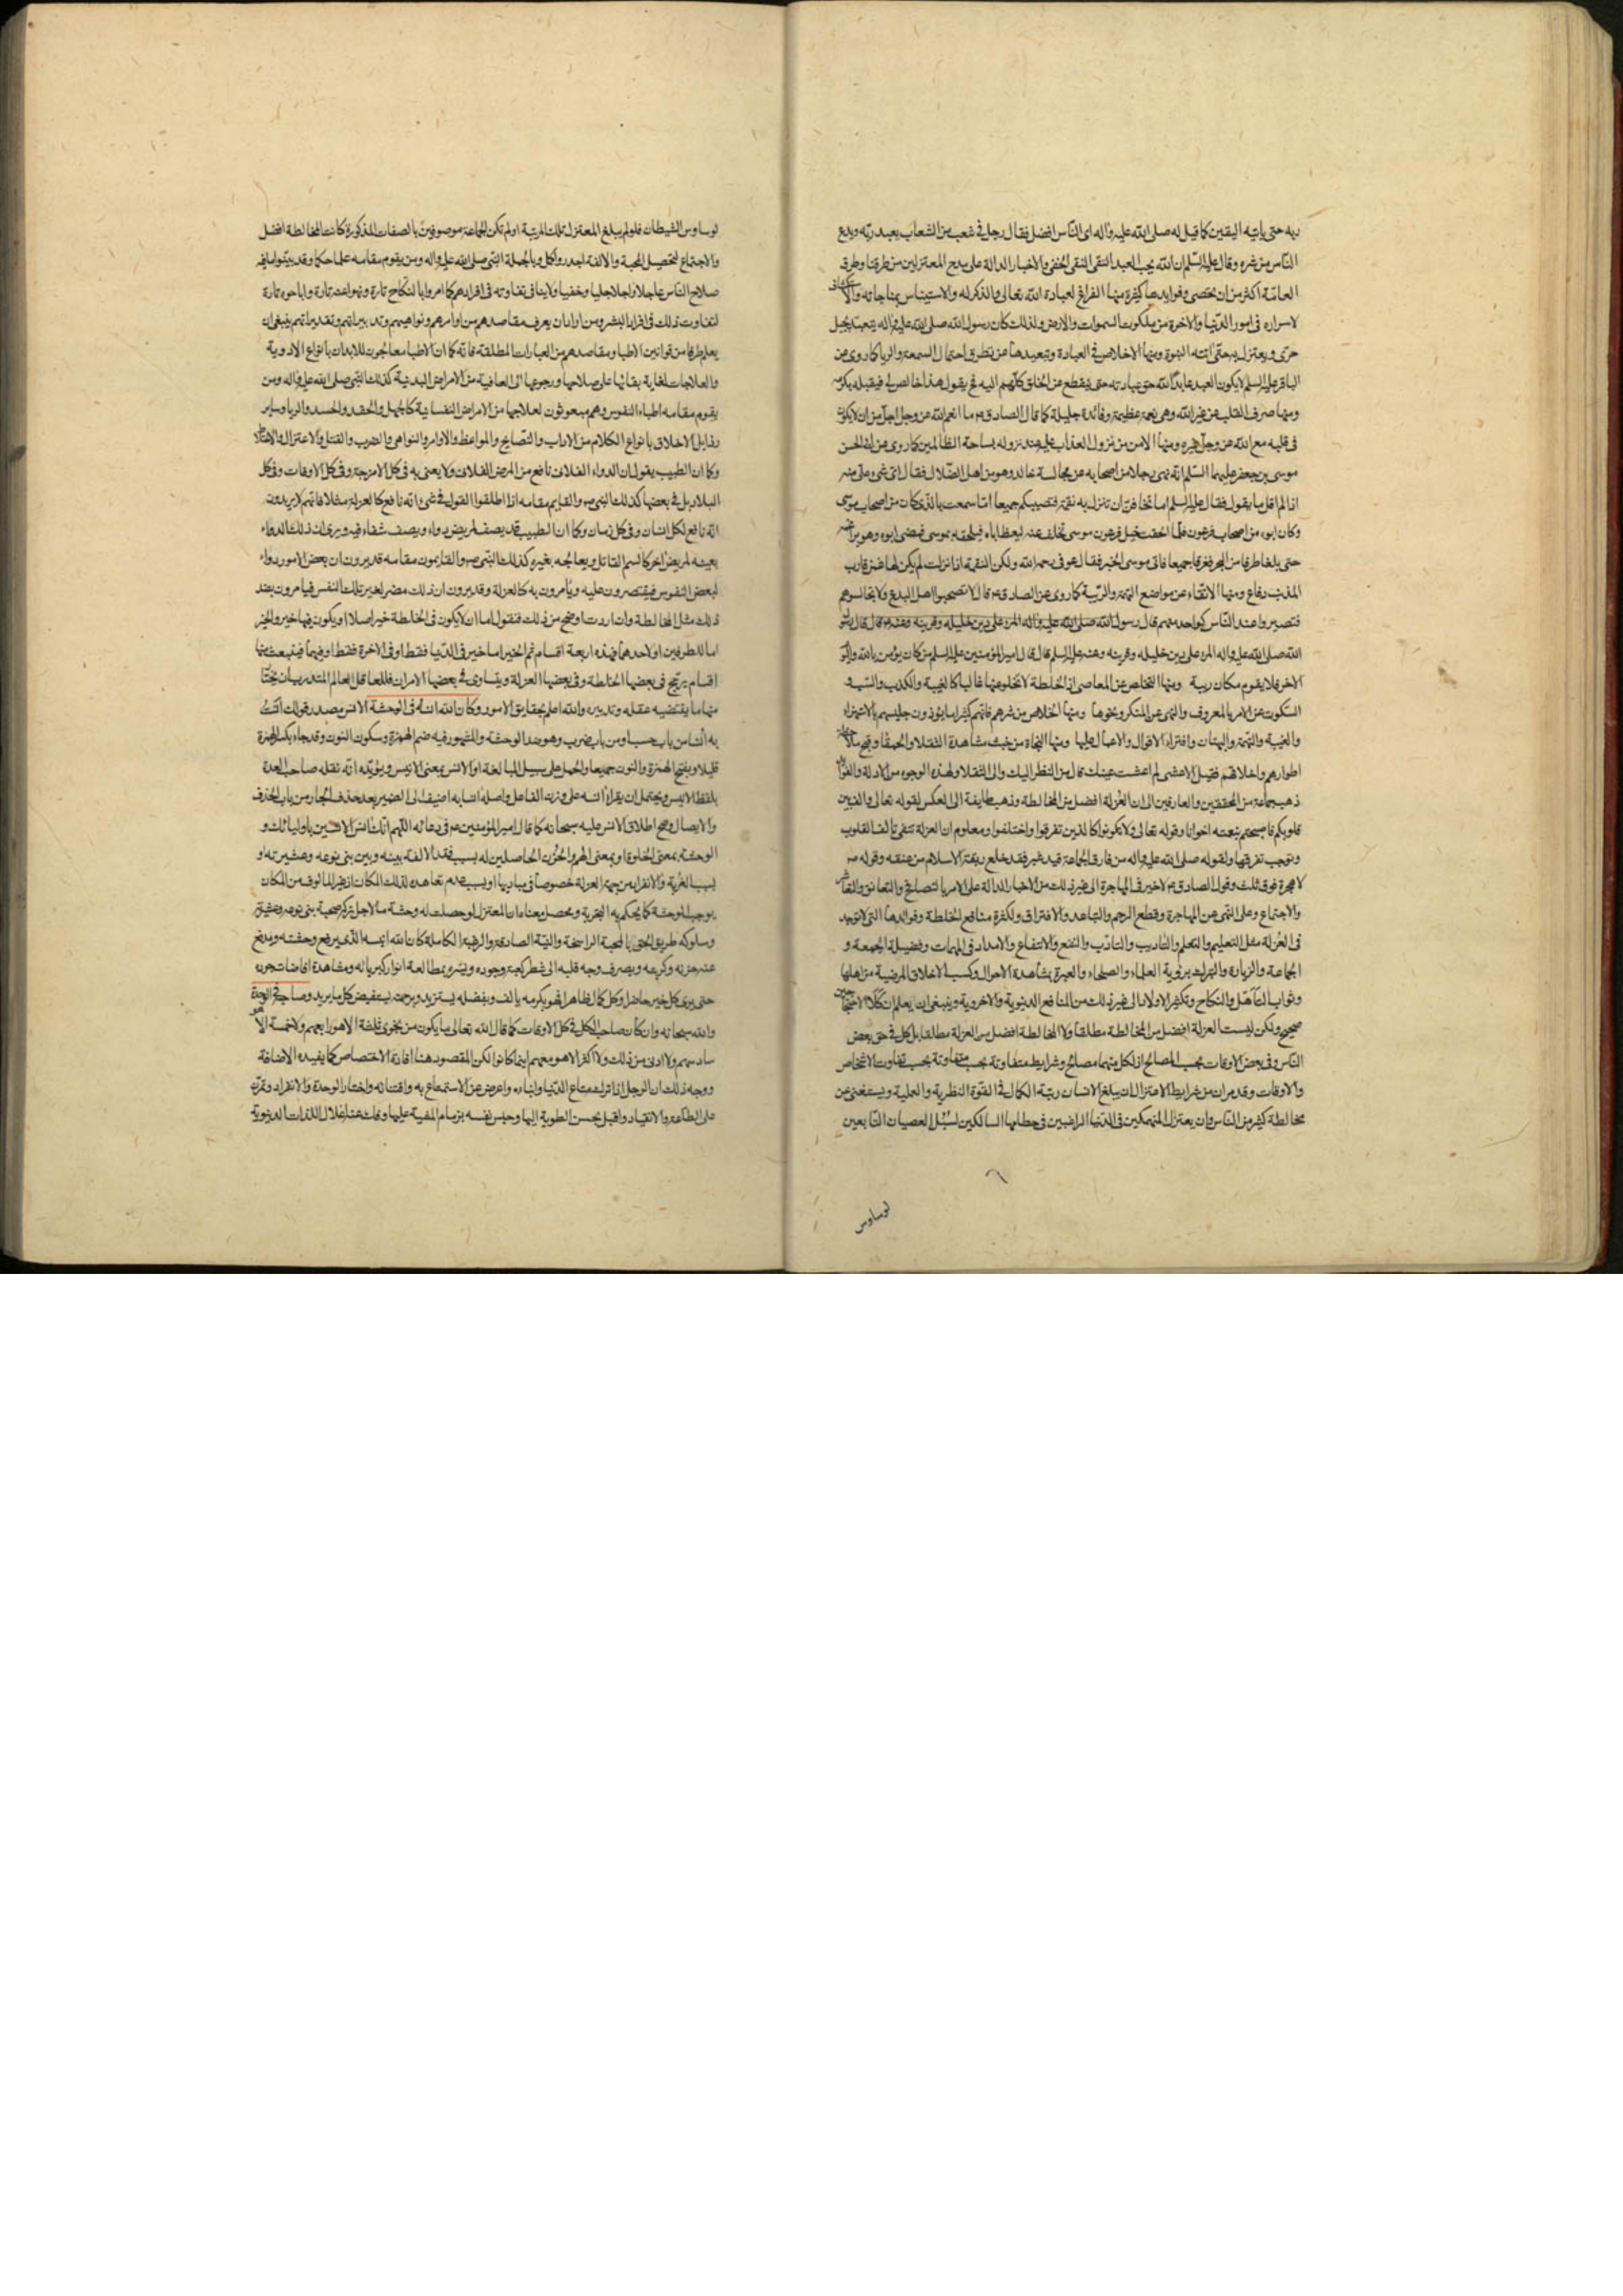 ربه حتى ياتيه اليقين كما قيل له صلى الله عليه واله اى الناس افضل فقال رجل فى شعب من الشعاب يعبد ربه ويدع
الناس من شره وقال عليه السلم ان الله يحب العبد التقى النقى الخفى والاخبار الدالة على مدح المعتزلين من طرقنا وطرق
العامة اكثر من ان تحصى وفوايدها كثيرة منها الفراغ لعبادة الله تعالى والذكر له والاستيناس بمناجاته والاستكشاف
لاسراره فى امور الدنيا والاخرة من ملكوت السموات والارض ولذلك كان رسول الله صلى الله عليه واله يتعبد بجبل
حرى ويعتزل به حتى اتته النبوة ومنها الاخلاص فى العبادة وتبعيدها عن تطرق احتمال السمعة والريا كما روى عن
الباقر عليه السلم لا يكون العبد عابدا لله حق عبادته حتى ينقطع عن الخلق كلهم اليه فح يقول هذا خالص لى فيقبله بكرمه
ومنها صرف القلب عن غير الله وهى نعمة عظيمة وفائدة جليلة كما قال الصادق ع ما انعم الله عز وجل اجل من ان لا يكون
فى قلبه مع الله عز وجل غيره ومنها الامن من نزول العذاب عليه عند نزوله بساحة الظالمين كما روى عن ابى الحسن
موسى بن جعفر عليهما السلم انه نهى رجلا من اصحابه عن مجالسة خاله وهو من اهل الضلال فقال اى شئ على منه
اذا لم اقل ما يقول فقال عليه السلم اما تخافن ان تنزل به نقمة فتصيبكم جميعا اما سمعت بالذى كان من اصحاب موسى
وكان ابوه من اصحاب فرعون فلما لحقت خيل فرعون موسى تخلف عنه ليعظ اباه فيلحقه بموسى فمضى ابوه وهو يراغمه
حتى بلغا طرفا من البحر فغرقا جميعا فاتى موسى الخبر فقال هو فى رحمة الله ولكن النقمة اذا نزلت لم يكن لها عمن قارب
المذنب دفاع ومنها الاتقاء عن مواضع التهم والريبة كما روى عن الصادق ع قال لا تصحبوا اهل البدع ولا تجالسوهم
فتصيروا عند الناس كواحد منهم قال رسول الله صلى الله عليه واله المرء على دين خليله وقرينه وعنه ع قال قال رسول
الله صلى الله عليه واله المرء على دين خليله وقرينه وعنه عليه السلم قال قال امير المؤمنين عليه السلم من كان يؤمن بالله واليوم
الاخر فلا يقوم مكان ريبة ومنها التخلص عن المعاصى اذ الخلطة لا تخلو عنها غالبا كالغيبة والكذب والسب و
السكوت عن الامر بالمعروف والنهى عن المنكر ونحوها ومنها الخلاص من شرهم فانهم كثيرا ما يؤذون جليسهم بالاستهزاء
والغيبة والتهمة والبهتان وافتراء الاقوال والاعمال عليها ومنها النجاة من خبث مشاهدة الثقلاء والحمقاء وقبح ملاحظة
اطوارهم واخلاقهم فقيل الاعشى لم اعشت عينك قال من النظر اليك والى الثقلاء ولهذه الوجوه من الادلة والفوايد
ذهب جماعة من المحققين والعارفين الى ان العزلة افضل من المخالطة وذهب طايفة الى العكس لقوله تعالى والف بين
قلوبكم فاصبحتم بنعمته اخوانا وقوله تعالى ولا تكونوا كالذين تفرقوا واختلفوا ومعلوم ان العزلة تنفى تالف القلوب
وتوجب تفرقها ولقوله صلى الله عليه واله من فارق الجماعة قيد شبر فقد خلع ربقة الاسلام من عنقه وقوله ص
لا هجرة فوق ثلث وقول الصادق ع لا خير فى المهاجرة الى غير ذلك من الاخبار الدالة على الامر بالتصافح والتعانق
والاجتماع وعلى النهى عن المهاجرة وقطع الرحم والتباعد والافتراق ولكثرة منافع الخلطة وفوائدها التى لا توجد
فى العزلة مثل التعليم والتعلم والتاديب والتادب والنفع والانتفاع والامداد فى المهمات وفضيلة الجمعة و
الجماعة والزيارة والتبرك برؤية العلماء والصلحاء والعبرة بمشاهدة الاحوال وكسب الاخلاق المرضية من اهلها
وثواب التاهل والنكاح وتكثير الاولاد الى غير ذلك من المنافع الدنيوية والاخروية وينبغى ان يعلم ان كلا الاحتجاجين
صحيح ولكن ليست العزلة افضل من المخالطة مطلقا ولا المخالطة افضل من العزلة مطلقا بل كل فى حق بعض
الناس وفى بعض الاوقات بحسب المصالح اذ لكل منهما مصالح وشرايط متفاوتة بحسب تفاوت الاشخاص
والاوقات وقد مر ان من شرايط الاعتزال ان يبلغ الانسان رتبة الكمال فى القوة النظرية والعملية ويستغنى عن
مخالطة كثير من الناس وان يعتزل المنهمكين فى الدنيا الراغبين فى حطامها السالكين لسبل العصيان التابعين
لوساوس
لوساوس الشيطان فلو لم يبلغ المعتزل تلك المرتبة او لم تكن الجماعة موصوفين بالصفات المذكورة كانت المخالطة افضل
والاجتماع لتحصيل المحبة والالفة اجدر واكمل وبالجملة النبى صلى الله عليه واله ومن يقوم مقامه علما حكما وقد بينوا ما فيه
صلاح الناس عاجلا واجلا جليا وخفيا ولا ينافى تفاوته فى افرادهم كما امروا بالنكاح تارة ونهوا عنه تارة واباحوه تارة
لتفاوت ذلك فى افراد البشر ومن اراد ان يعرف مقاصدهم من اوامرهم ونواهيهم وتدبيراتهم وتقديراتهم فينبغى ان
يعلم طرفا من قوانين الاطبا ومقاصدهم من العبارات المطلقة فانه كما ان الاطبا معالجون للابدان بانواع الادوية
والعلاجات لغاية بقائها على صلاحها ورجوعها الى العافية من الامراض البدنية كذلك النبى صلى الله عليه واله ومن
يقوم مقامه اطباء النفوس وهم مبعوثون لعلاجها من الامراض النفسانية كالجهل والحقد والحسد والريا وساير
رذايل الاخلاق بانواع الكلام من الاداب والنصايح والمواعظ والاوامر والنواهى والضرب والقتل والاعتزال
وكما ان الطبيب يقول ان الدواء الفلانى نافع من المرض الفلانى ولا يعنى به فى كل الامزجة وفى كل الاوقات وفى كل
البلاد بل فى بعضها كذلك النبى ص والقايم مقامه اذا اطلقوا القول فى شئ انه نافع كالعزلة مثلا فانهم لا يريدون
انه نافع لكل انسان وفى كل زمان وكما ان الطبيب قد يصف لمريض دواء ويصف شفاءه فيه ويرى ان ذلك الدواء
بعينه لمريض اخر كالسم القاتل ويعالجه بغيره كذلك النبى ص والقايمون مقامه قد يرون ان بعض الامور دواء
لبعض النفوس فيقتصرون عليه ويأمرون به كالعزلة وقد يرون ان ذلك مضر لغير تلك النفس فيامرون بضد
ذلك مثل المخالطة وان اردت اوضح من ذلك فنقول اما ان لا يكون فى الخلطة خير اصلا او يكون فيها خير والخير
اما للطرفين او لاحدهما فهذه اربعة اقسام ثم الخير اما خير فى الدنيا فقط او فى الاخرة فقط او فيهما فينبعث منها
اقسام يرجح فى بعضها الخلطة وفى بعضها العزلة ويتساوى فى بعضها الامران فللعاقل العالم المتدرب ان يختار
منها ما يقتضيه عقله وتدبيره والله اعلم بحقايق الامور وكان الله انسه فى الوحشة الانس مصدر قولك انست
به انسا من باب حسب او من باب ضرب وهو ضد الوحشة والمشهور فيه ضم الهمزة وسكون النون وقد جاء بكسر الهمزة
قليلا وبفتح الهمزة والنون جميعا والحمل على سبيل المبالغة او الانس بمعنى الانيس ويؤيده انه نقله صاحب العدة
بلفظ الانيس ويحتمل ان يقرأ انسه على وزن الفاعل واصله انسا به اضيف الى الضمير بعد حذف الجار من باب الحذف
والايصال وصح اطلاق الانس عليه سبحانه كما قال امير المؤمنين ع فى دعائه اللهم انك انس الانسين باوليائك و
الوحشة بمعنى الخلوة او بمعنى الهم والحزن الحاصلين له بسبب فقد الالفة بينه وبين بنى نوعه وعشيرته او
بسبب الغربة والانفراد من جهة العزلة خصوصا فى مباديها او بسبب عدم تعاهده لذلك المكان اذ غير المالوف من المكان
يوجب الوحشة كما يحكم به التجربة ومحصل معناه ان المعتزل لو حصلت له وحشة ما لاجل تركه صحبة بنى نوعه وعشيرته
وسلوكه طريق الحق بالمحبة الراسخة والنية الصادقة والرغبة الكاملة كان الله انيسه الذى يرفع وحشته ويدفع
عنه حزنه وكربه ويصرف وجه قلبه الى شطر كعبة وجوده ويسره بمطالعة انوار كبريائه ومشاهدة افاضات جوده
حتى يرى كل خير حاضرا وكل كمال ظاهرا فهو بكرمه يالف وبفضله يستزيد وبرحمته يستفيض كل ما يريد وصاحبه فى الوحدة
والله سبحانه وان كان صاحب الكل فى كل الاوقات كما قال الله تعالى ما يكون من نجوى ثلثة الا هو رابعهم ولا خمسة الا هو
سادسهم ولا ادنى من ذلك ولا اكثر الا هو معهم اينما كانوا لكن المقصود هنا افادة الاختصاص كما يفيده الاضافة
ووجه ذلك ان الرجل اذا ترك متاع الدنيا وابناءه واعرض عن الاستمتاع به واقتنائه واختار الوحدة والانفراد وتمرن
على الطاعة والانقياد واقبل بحسن الطوية اليها وحبس نفسه بزمام المشية عليها وفك عنها اغلال اللذات الدنيوية